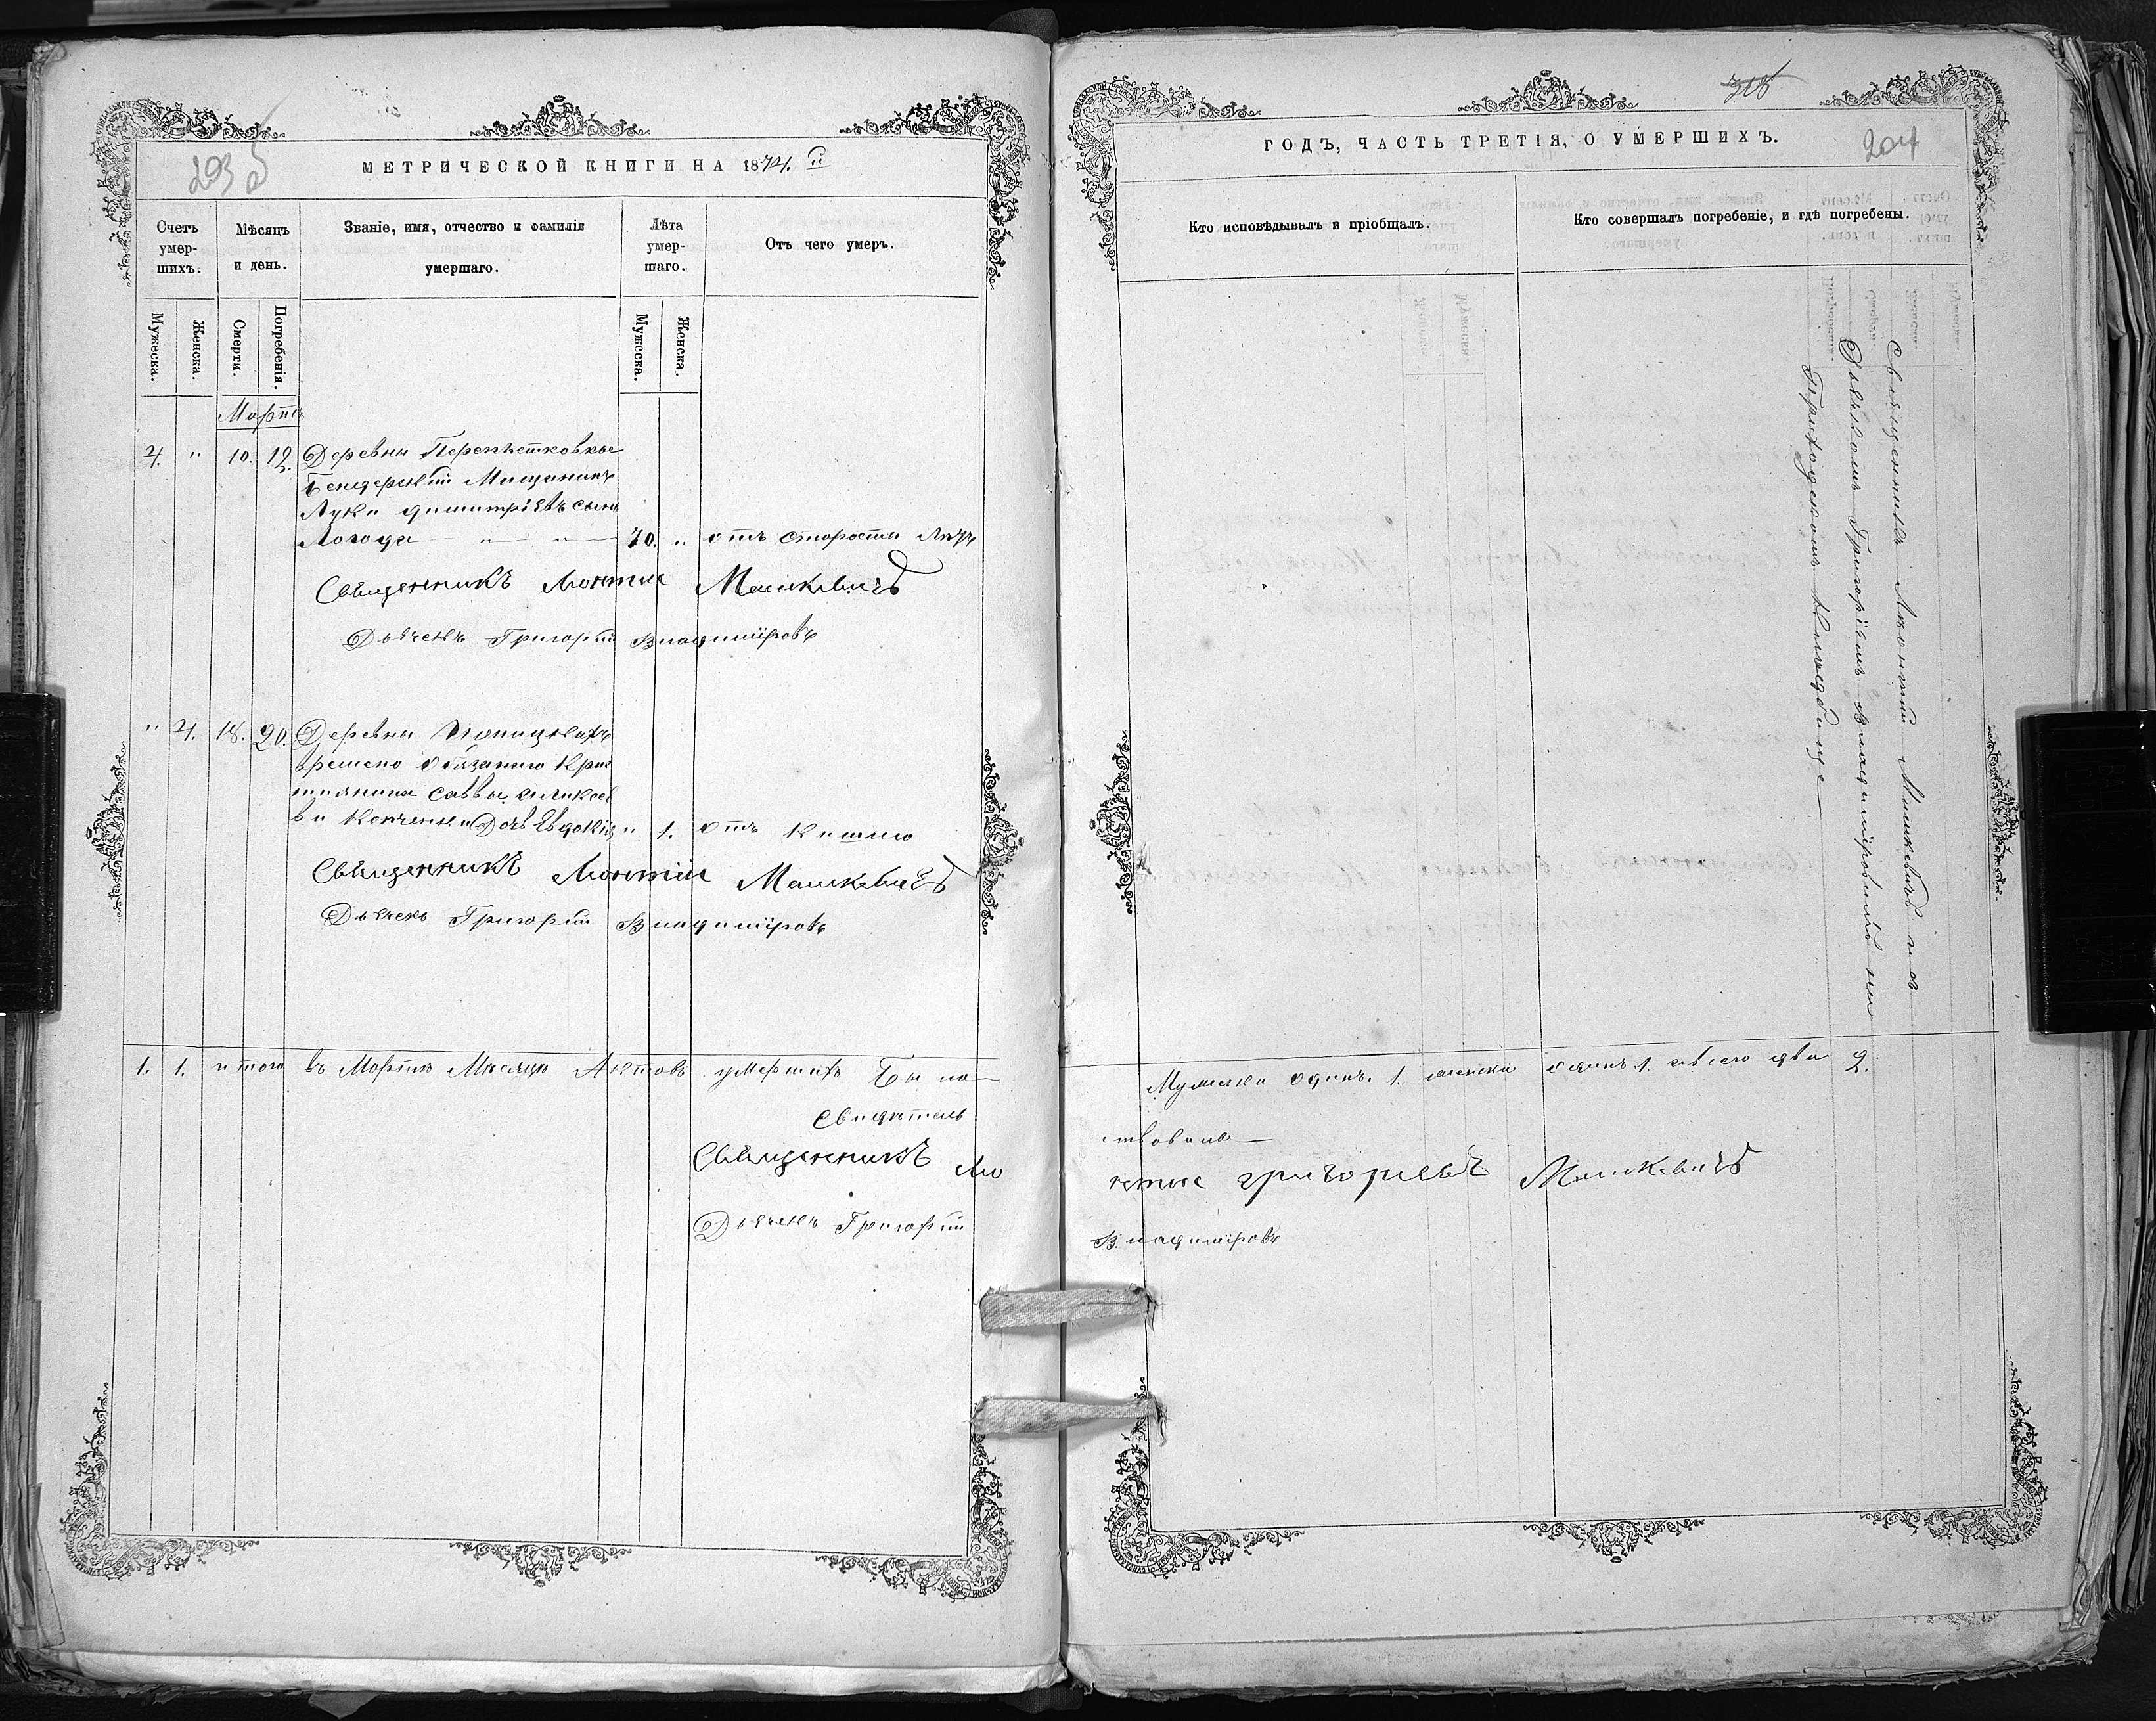 293 б
МЕТРИЧЕСКОЙ КНИГИ НА 1874.й
Счетъ умер-шихъ.
Мѣсяцъ и день.
Званіе, имя, отчество и фамилія умершаго.
Лѣта умер-шаго.
Отъ чего умеръ.
Мужеска.
Женска.
Смерти.
Погребенія.
Мужеска.
Женска.
Мартъ
4. " 10. 12. Деревни
Бендерскій Мищанинъ
Лука димитріевъ сынъ
70. " отъ старости лѣтъ
Священникъ Леонтій Машкевичъ
Дьячекъ Григорій Владиміровъ
" 4. 18. 20. Деревни
времено обязаного Крис
тиянина Саввы
ва Дочь Евдокія " 1. отъ кашлю
Священникъ Леонтій Машкевичъ
Дьячекъ Григорій Владиміровъ
1. 1. итого въ Мартѣ Мѣсяцѣ Актовъ умершихъ Было
Свидѣтель
Священникъ Лео
Дьячекъ Григорій
318
ГОДЪ, ЧАСТЬ ТРЕТІЯ, О УМЕРШИХЪ.
204
Кто исповѣдывалъ и пріобщалъ.
Кто совершалъ погребеніе, и гдѣ погребены.
Священникъ Леонтій Машкевичъ съ
Дьячкомъ Григоріемъ Владиміровымъ на
Приходскомъ кладбище
Мужеска одинъ. 1. женска одинъ 1. а всего два 2.
ствовали
нтій Григорьевъ Машкевичъ
Владиміровъ